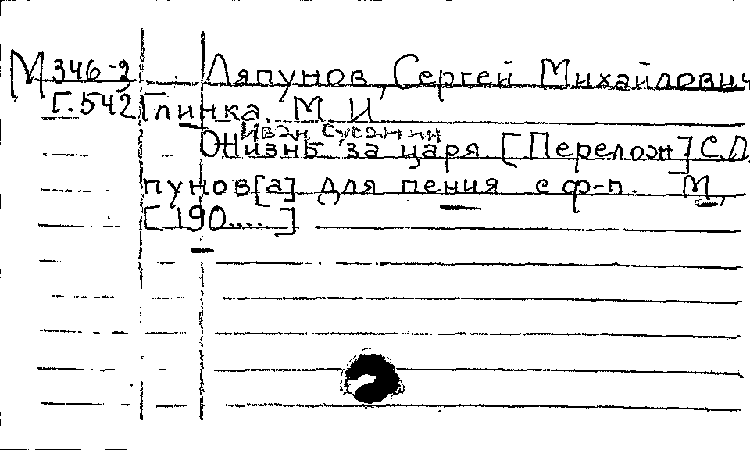 М 346-2 Ляпунов, Сергей Михайлович
Г.542 Глинка. М. И
Иван Сусанин
Жизнь за царя [Перелож] С.
пунов[а] для пения с ф-п. М,
[190....]